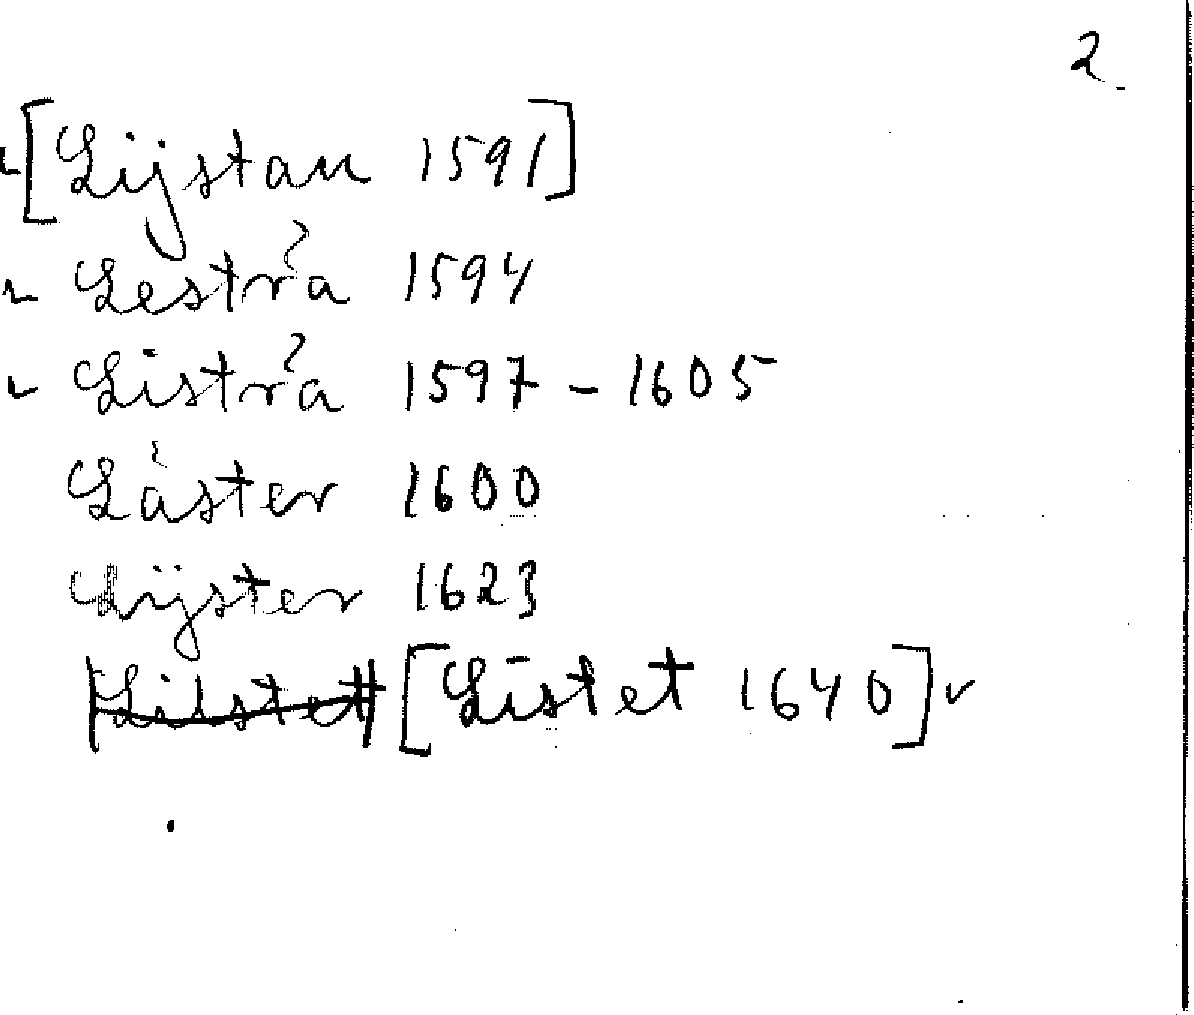 2.
[Lijstan 1591]
Lestra 1594
Listra 1597 - 1605
Läster 1600
Lijster 1623
Listet [Listet 1640]